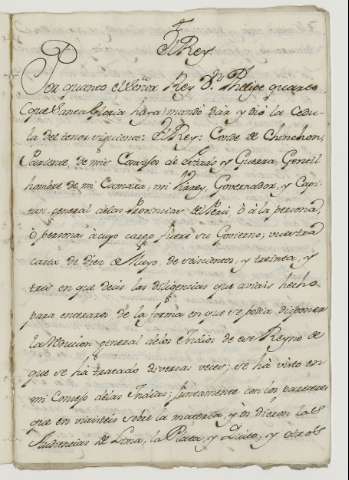 El Rey
Por quanto el Señor Rey Dn Phelipe quarto
que Santa Gloria haya mandó dar, y dió la Cedu
la del tenor siguiente: El Rey: Conde de Chinchon,
Pariente, de mis Consejos de Estado, y Guerra, Gentil
hombre de mi Camara, mi Virrey, Governador, y Capi
tan general de las Provincias del Peru ó á la persona,
ó personas á cuyo cargo fuere su Govierno, vuestra
carta de diez de Mayo de seiscientos, y treinta, y
tres en que decis las diligencias que aviais hecho
para enteraros de la forma en que se podia disponer
la reduccion general de los Indios de ese Reyno de
que se há tratado diversas veces; se há visto en
mi Consejo de las Indias; juntamente con los pareceres
que en embiáis sobre la materia, y os dieron las
Audiencias de Lima, la Plata, y Quito, y otros